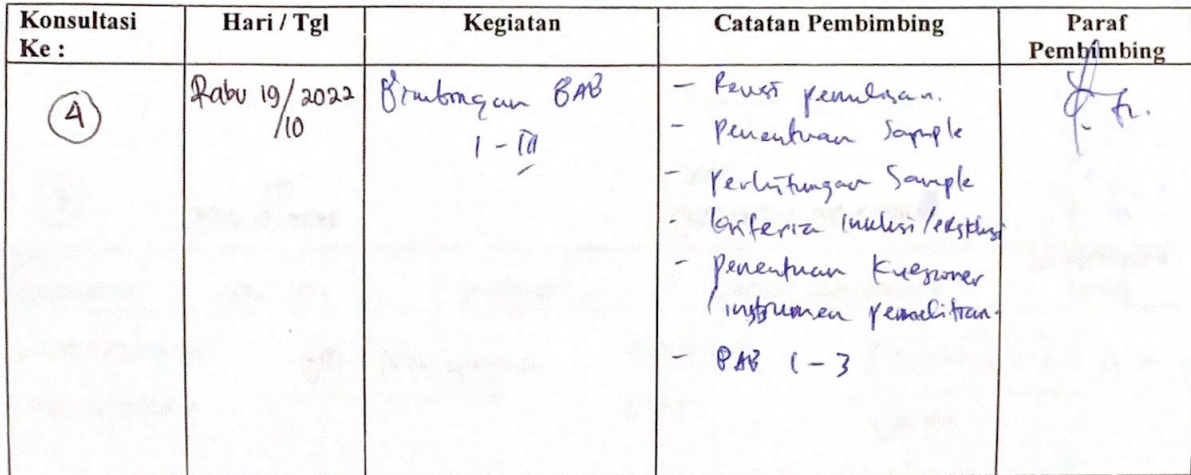 Konsultasi Ke :
Hari / Tgl
Kegiatan
Catatan Pembimbing
Paraf Pembimbing
4
Rabu 19/10 2022
Bimbingan BAB
I - III
- Revisi penulisan.
- Penentuan Sample
- Perhitungan Sample
- kriteria inklusi/eksklusi
- Penentuan Kuesioner
/instrumen penelitian.
- BAB 1 - 3